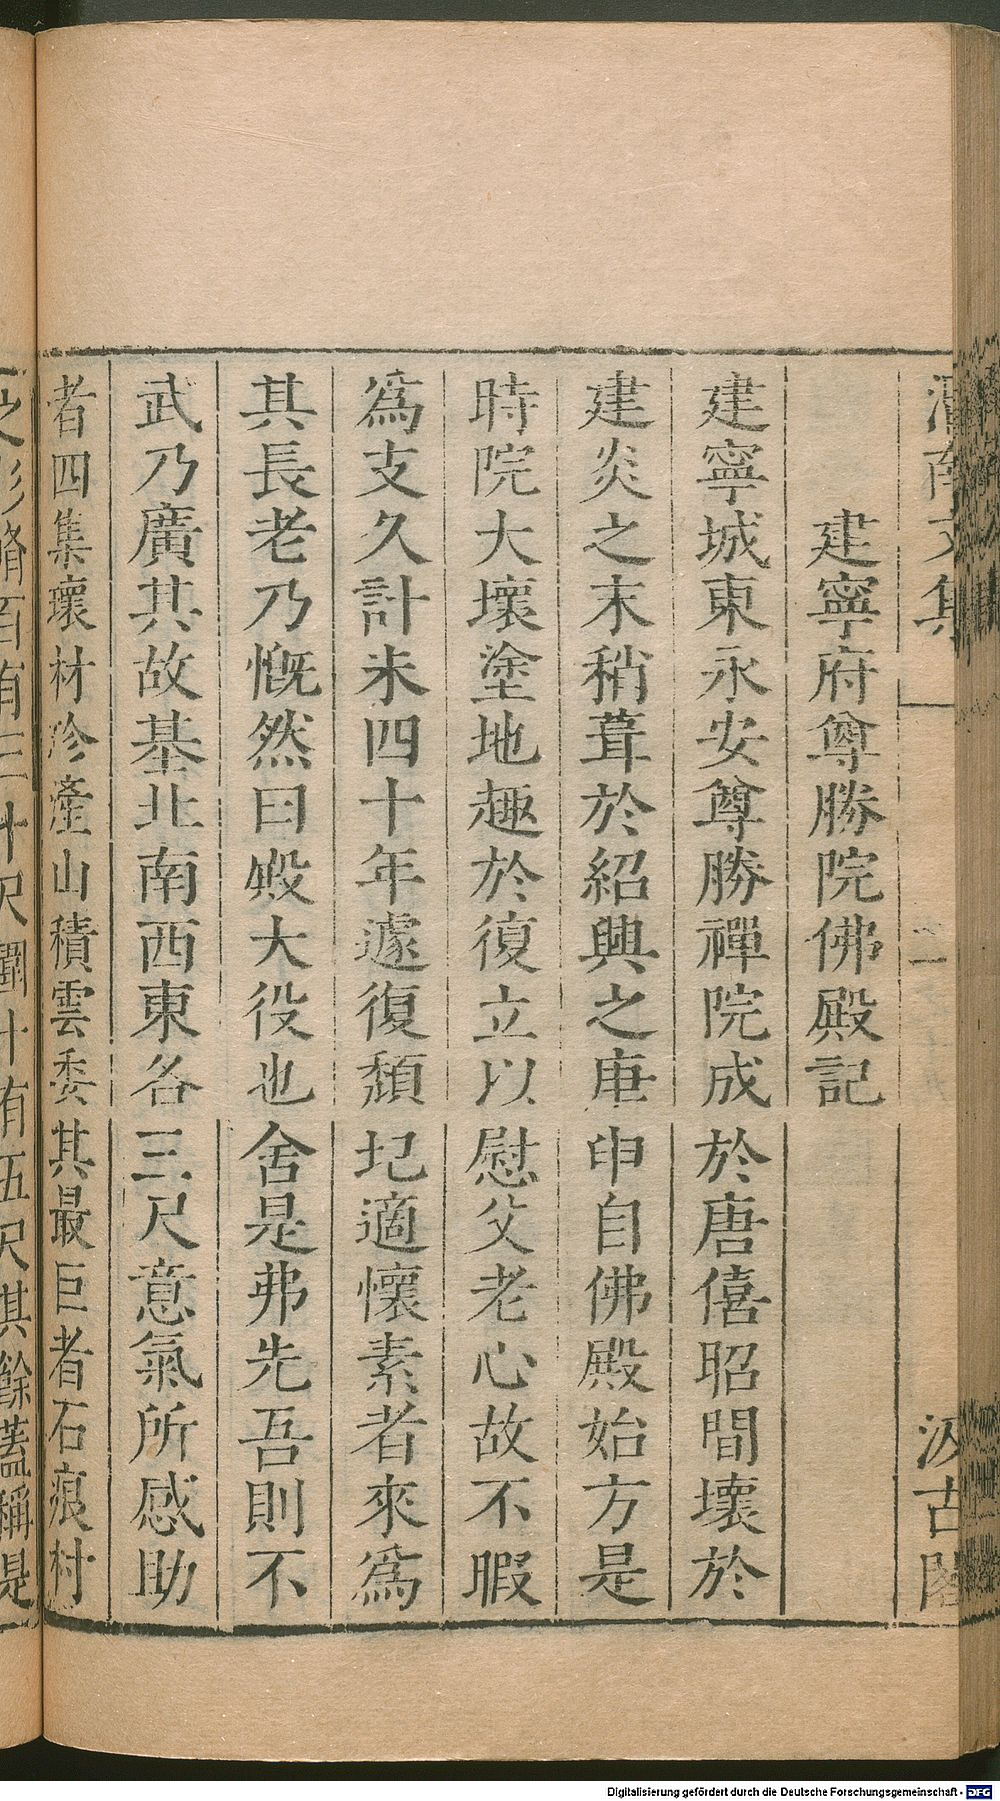 渭南文集
二
汲古閣
建寧府尊勝院佛殿記
建寧城東永安尊勝禪院成於唐僖昭間壞於
建炎之末稍葺於紹興之庚申自佛殿始方是
時院大壞塗地趣於復立以慰父老心故不暇
為支久計未四十年遽復頹圮適懷素者來為
其長老乃慨然曰殿大役也舍是弗先吾則不
武乃廣其故基北南西東各三尺意氣所感助
者四集瓌材珍產山積雲委其最巨者石痕村
之杉脩百有三十尺圍十有五尺其餘葢稱是
Digitalisierung gefördert durch die Deutsche Forschungsgemeinschaft - DFG